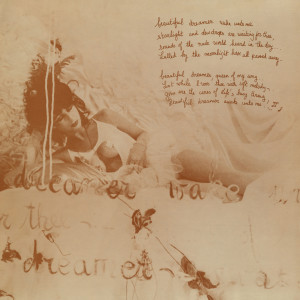 beautiful dreamer wake unto me
starlight and dewdrops are waiting for thee
sounds of the rude world heard in the day
lulled by the moonlight have all passed away.
beautiful dreamer, queen of my song
list while I woo thee with soft melody
gone are the cares of life's busy throng
Beautiful dreamer awake unto me!
dreamer wa
r thee
dreamer